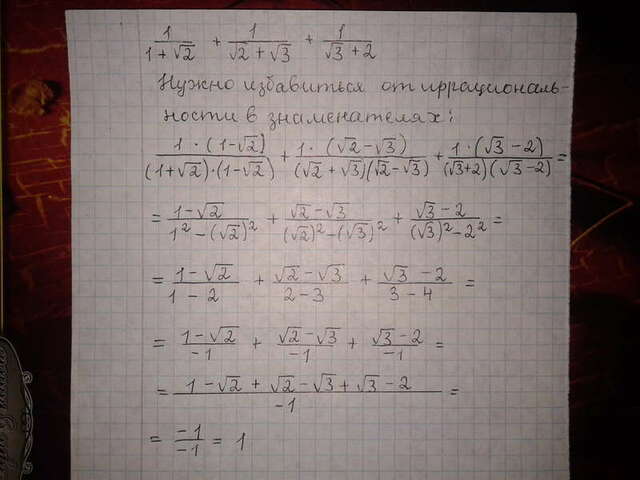 1/(1+√2) + 1/(√2+√3) + 1/(√3+2)
Нужно избавиться от иррациональ-
ности в знаменателях:
1·(1-√2)/((1+√2)·(1-√2)) + 1·(√2-√3)/((√2+√3)(√2-√3)) + 1·(√3-2)/((√3+2)(√3-2)) =
= (1-√2)/(1²-(√2)²) + (√2-√3)/((√2)²-(√3)²) + (√3-2)/((√3)²-2²) =
= (1-√2)/(1-2) + (√2-√3)/(2-3) + (√3-2)/(3-4) =
= (1-√2)/(-1) + (√2-√3)/(-1) + (√3-2)/(-1) =
= (1-√2+√2-√3+√3-2)/(-1) =
= -1/-1 = 1